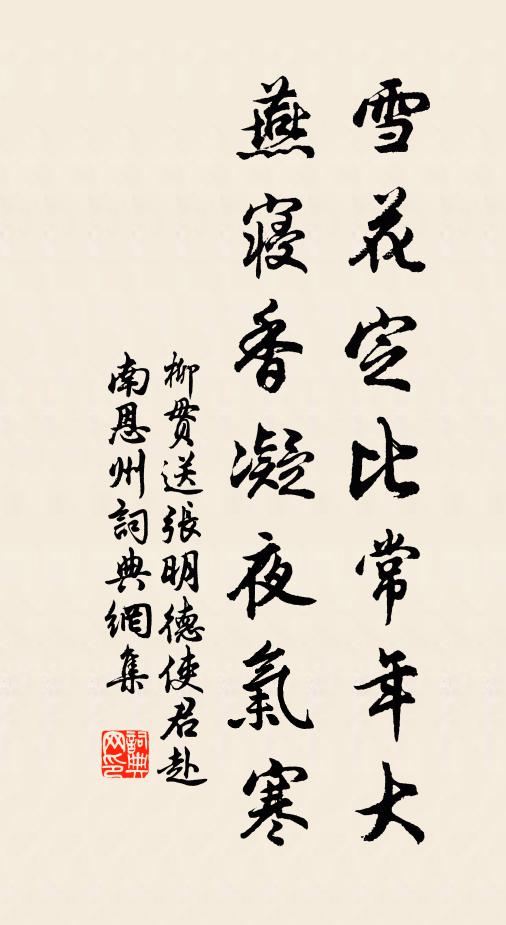 雪花定比常年大
燕寝香凝夜氣寒
柳贯送張明德使君赴
南恩州詞典網集
詞典
网印